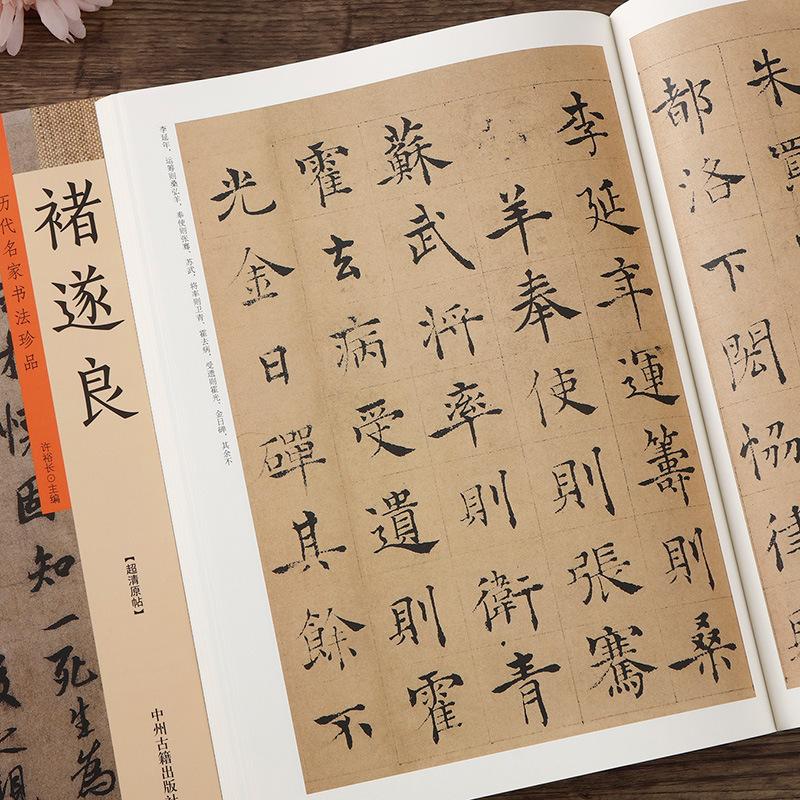 朱買
都洛下閎協律
李延年運籌則桑
羊奉使則張騫
蘇武將率則衛青
霍去病受遺則霍
光金日磾其餘不
李延年，运筹则桑弘羊，奉使则张骞、苏武，将率则卫青、霍去病，受遗则霍光、金日磾，其余不
历代名家书法珍品
褚遂良
许裕长⊙主编
【超清原帖】
中州古籍出版社
固知一死生為